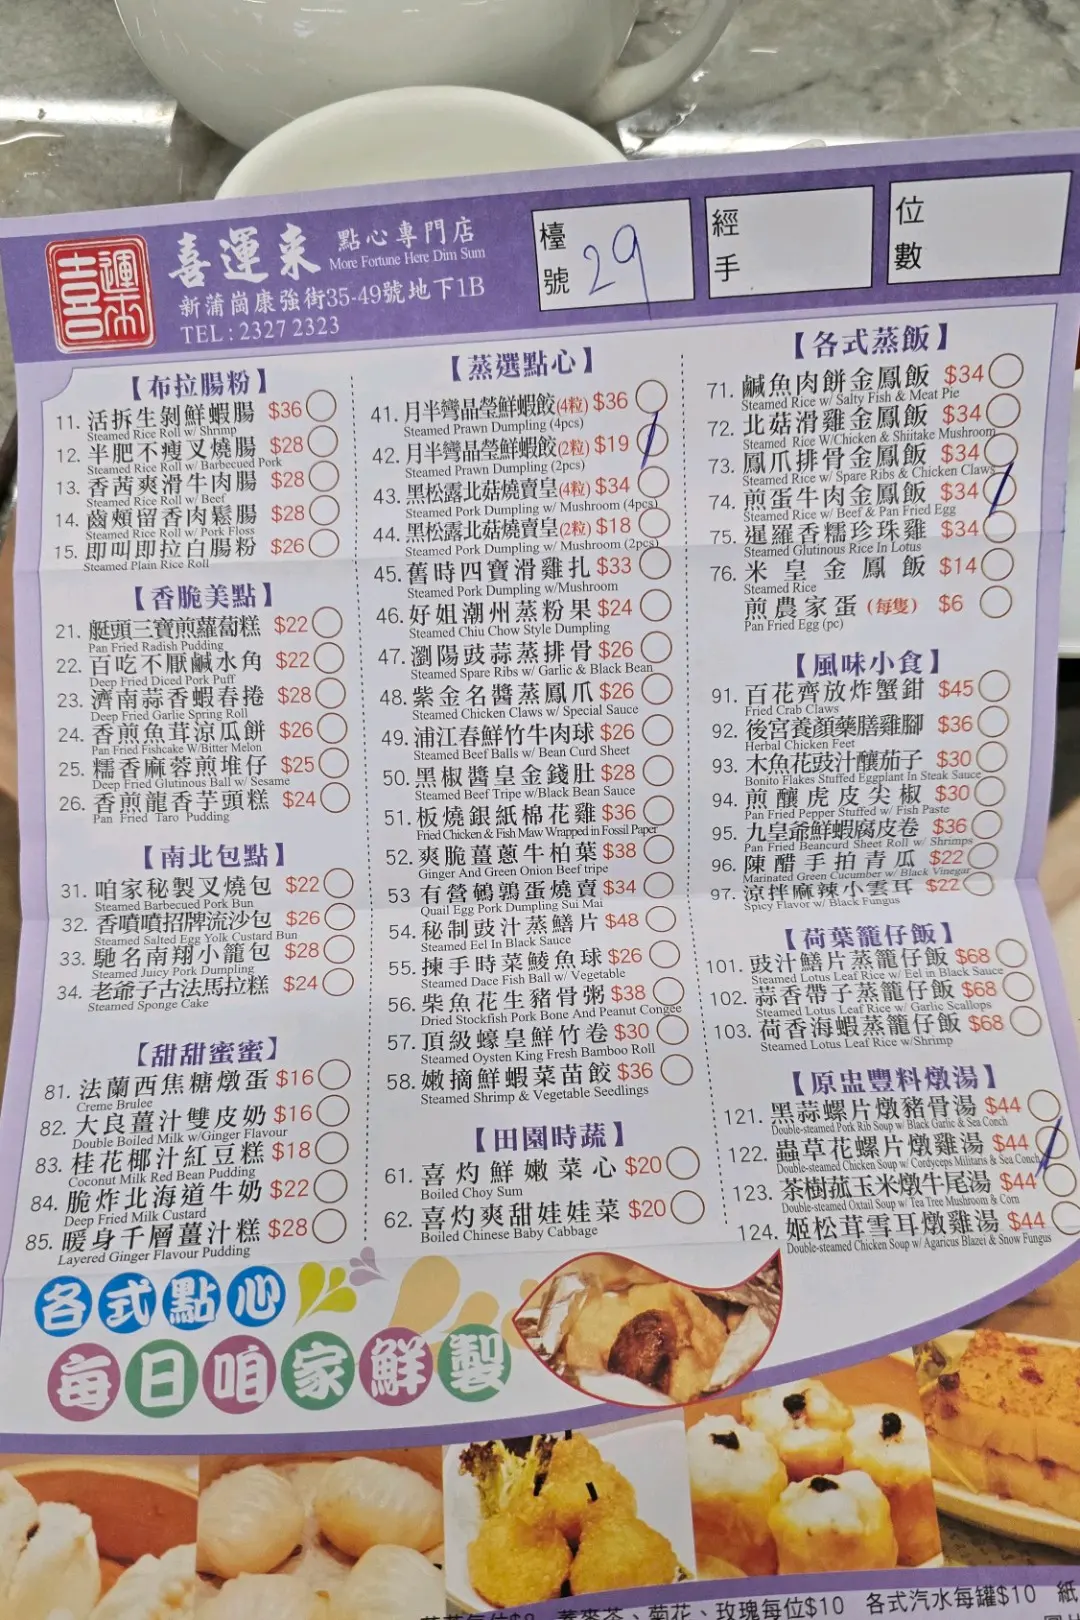 喜運来 點心專門店
More Fortune Here Dim Sum
新蒲崗康強街35-49號地下1B
TEL : 2327 2323
檯號 29
經手
位數
【布拉腸粉】
11. 活拆生剝鮮蝦腸 $36
Steamed Rice Roll w/ Shrimp
12. 半肥不瘦叉燒腸 $28
Steamed Rice Roll w/ Barbecued Pork
13. 香茜爽滑牛肉腸 $28
Steamed Rice Roll w/ Beef
14. 齒頰留香肉鬆腸 $28
Steamed Rice Roll w/ Pork Floss
15. 即叫即拉白腸粉 $26
Steamed Plain Rice Roll
【香脆美點】
21. 艇頭三寶煎蘿蔔糕 $22
Pan Fried Radish Pudding
22. 百吃不厭鹹水角 $22
Deep Fried Diced Pork Puff
23. 濟南蒜香蝦春捲 $28
Deep Fried Garlic Spring Roll
24. 香煎魚茸涼瓜餅 $26
Pan Fried Fishcake W/Bitter Melon
25. 糯香麻蓉煎堆仔 $25
Deep Fried Glutinous Ball w/ Sesame
26. 香煎龍香芋頭糕 $24
Pan Fried Taro Pudding
【南北包點】
31. 咱家秘製叉燒包 $22
Steamed Barbecued Pork Bun
32. 香噴噴招牌流沙包 $26
Steamed Salted Egg Yolk Custard Bun
33. 馳名南翔小籠包 $28
Steamed Juicy Pork Dumpling
34. 老爺子古法馬拉糕 $24
Steamed Sponge Cake
【甜甜蜜蜜】
81. 法蘭西焦糖燉蛋 $16
Creme Brulee
82. 大良薑汁雙皮奶 $16
Double Boiled Milk w/Ginger Flavour
83. 桂花椰汁紅豆糕 $18
Coconut Milk Red Bean Pudding
84. 脆炸北海道牛奶 $22
Deep Fried Milk Custard
85. 暖身千層薑汁糕 $28
Layered Ginger Flavour Pudding
【蒸選點心】
41. 月半彎晶瑩鮮蝦餃(4粒) $36
Steamed Prawn Dumpling (4pcs)
42. 月半彎晶瑩鮮蝦餃(2粒) $19
Steamed Prawn Dumpling (2pcs)
43. 黑松露北菇燒賣皇(4粒) $34
Steamed Pork Dumpling w/ Mushroom (4pcs)
44. 黑松露北菇燒賣皇(2粒) $18
Steamed Pork Dumpling w/ Mushroom (2pcs)
45. 舊時四寶滑雞扎 $33
Steamed Pork Dumpling w/Mushroom
46. 好姐潮州蒸粉果 $24
Steamed Chiu Chow Style Dumpling
47. 瀏陽豉蒜蒸排骨 $26
Steamed Spare Ribs w/ Garlic & Black Bean
48. 紫金名醬蒸鳳爪 $26
Steamed Chicken Claws w/ Special Sauce
49. 浦江春鮮竹牛肉球 $26
Steamed Beef Balls w/ Bean Curd Sheet
50. 黑椒醬皇金錢肚 $28
Steamed Beef Tripe w/Black Bean Sauce
51. 板燒銀紙棉花雞 $36
Fried Chicken & Fish Maw Wrapped in Fossil Paper
52. 爽脆薑蔥牛柏葉 $38
Ginger And Green Onion Beef tripe
53 有營鵪鶉蛋燒賣 $34
Quail Egg Pork Dumpling Sui Mai
54. 秘制豉汁蒸鱔片 $48
Steamed Eel In Black Sauce
55. 揀手時菜鯪魚球 $26
Steamed Dace Fish Ball w/ Vegetable
56. 柴魚花生豬骨粥 $38
Dried Stockfish Pork Bone And Peanut Congee
57. 頂級蠔皇鮮竹卷 $30
Steamed Oysten King Fresh Bamboo Roll
58. 嫩摘鮮蝦菜苗餃 $36
Steamed Shrimp & Vegetable Seedlings
【田園時蔬】
61. 喜灼鮮嫩菜心 $20
Boiled Choy Sum
62. 喜灼爽甜娃娃菜 $20
Boiled Chinese Baby Cabbage
【各式蒸飯】
71. 鹹魚肉餅金鳳飯 $34
Steamed Rice w/ Salty Fish & Meat Pie
72. 北菇滑雞金鳳飯 $34
Steamed Rice W/Chicken & Shiitake Mushroom
73. 鳳爪排骨金鳳飯 $34
Steamed Rice w/ Spare Ribs & Chicken Claws
74. 煎蛋牛肉金鳳飯 $34
Steamed Rice w/ Beef & Pan Fried Egg
75. 暹羅香糯珍珠雞 $34
Steamed Glutinous Rice In Lotus
76. 米皇金鳳飯 $14
Steamed Rice
煎農家蛋 (每隻) $6
Pan Fried Egg (pc)
【風味小食】
91. 百花齊放炸蟹鉗 $45
Fried Crab Claws
92. 後宮養顏藥膳雞腳 $36
Herbal Chicken Feet
93. 木魚花豉汁釀茄子 $30
Bonito Flakes Stuffed Eggplant In Steak Sauce
94. 煎釀虎皮尖椒 $30
Pan Fried Pepper Stuffed w/ Fish Paste
95. 九皇爺鮮蝦腐皮卷 $36
Pan Fried Beancurd Sheet Roll w/ Shrimps
96. 陳醋手拍青瓜 $22
Marinated Green Cucumber w/ Black Vinegar
97. 涼拌麻辣小雲耳 $22
Spicy Flavor w/ Black Fungus
【荷葉籠仔飯】
101. 豉汁鱔片蒸籠仔飯 $68
Steamed Lotus Leaf Rice w/ Eel in Black Sauce
102. 蒜香帶子蒸籠仔飯 $68
Steamed Lotus Leaf Rice w/ Garlic Scallops
103. 荷香海蝦蒸籠仔飯 $68
Steamed Lotus Leaf Rice w/Shrimp
【原盅豐料燉湯】
121. 黑蒜螺片燉豬骨湯 $44
Double-steamed Pork Rib Soup w/ Black Garlic & Sea Conch
122. 蟲草花螺片燉雞湯 $44
Double-steamed Chicken Soup w/ Cordyceps Militaris & Sea Conch
123. 茶樹菰玉米燉牛尾湯 $44
Double-steamed Oxtail Soup w/ Tea Tree Mushroom & Corn
124. 姬松茸雪耳燉雞湯 $44
Double-steamed Chicken Soup w/ Agaricus Blazei & Snow Fungus
各式點心
每日咱家鮮製
蕎麥茶、菊花、玫瑰每位$10 各式汽水每罐$10 紙